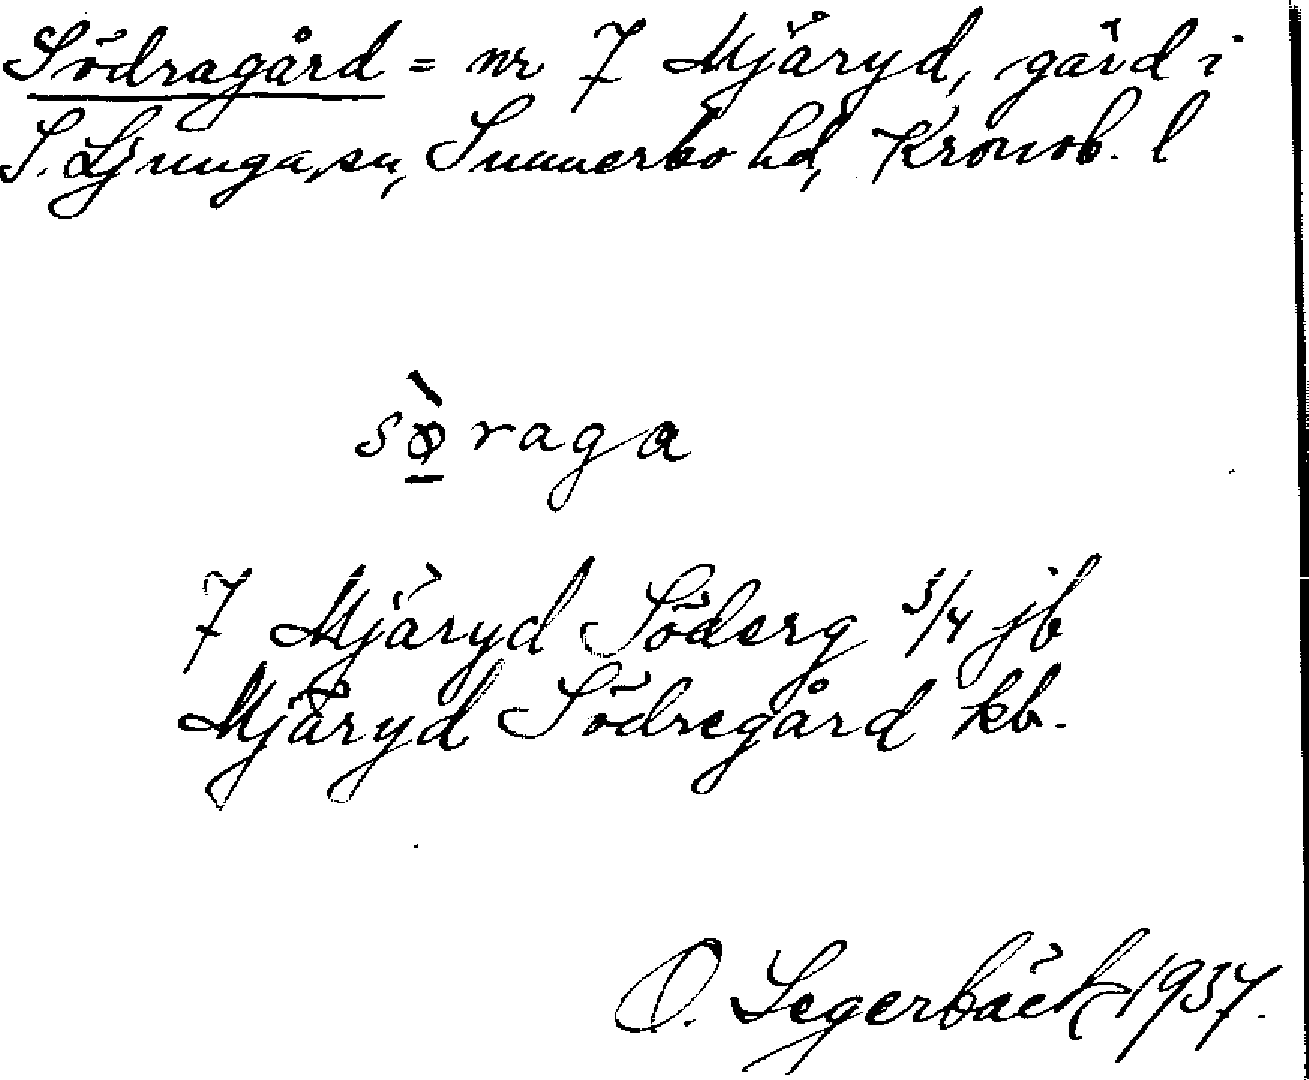 Södragård = nr 7 Mjäryd, gård i
S. Ljunga, sn, Sunnerbo hd, Kronob. l
sø̱̀raga
7 Mjäryd Söderg 3/4 jb
Mjäryd Södregård kb.
O. Segerbäck 1937.